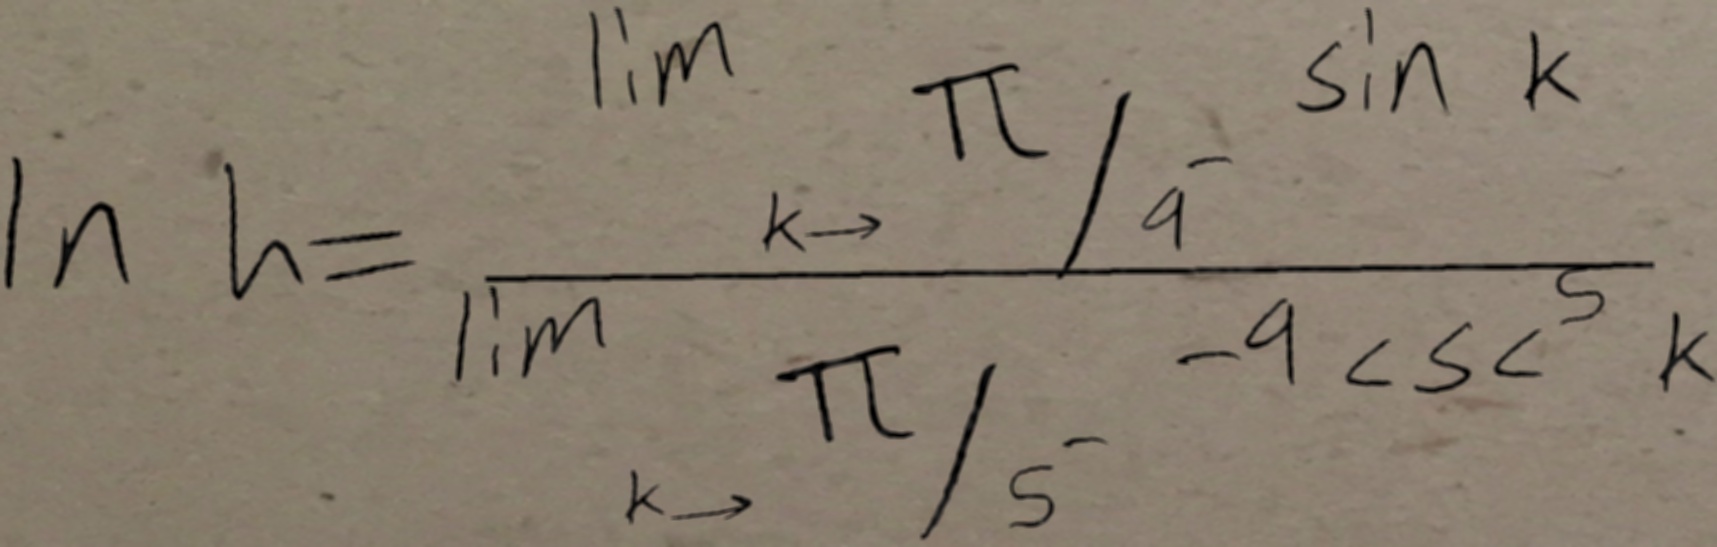 ln h = \frac{\lim_{k \to \pi/9^-} \sin k}{\lim_{k \to \pi/5^-} -9 \csc^5 k}